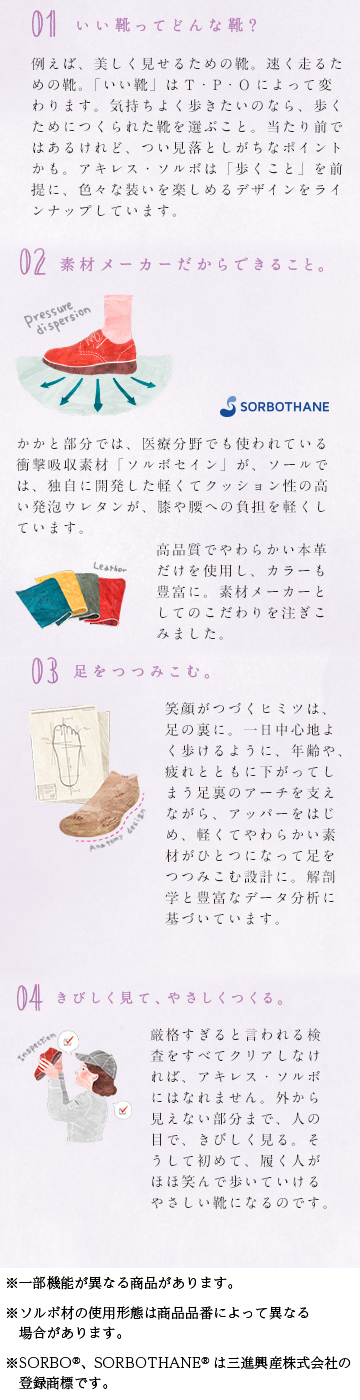 01 いい靴ってどんな靴？
例えば、美しく見せるための靴。速く走るた
めの靴。「いい靴」はT・P・Oによって変
わります。気持ちよく歩きたいのなら、歩く
ためにつくられた靴を選ぶこと。当たり前で
はあるけれど、つい見落としがちなポイント
かも。アキレス・ソルボは「歩くこと」を前
提に、色々な装いを楽しめるデザインをライ
ンナップしています。
02 素材メーカーだからできること。
Pressure
dispersion
SORBOTHANE
かかと部分では、医療分野でも使われている
衝撃吸収素材「ソルボセイン」が、ソールで
は、独自に開発した軽くてクッション性の高
い発泡ウレタンが、膝や腰への負担を軽くし
ています。
Leather
高品質でやわらかい本革
だけを使用し、カラーも
豊富に。素材メーカーと
してのこだわりを注ぎこ
みました。
03 足をつつみこむ。
笑顔がつづくヒミツは、
足の裏に。一日中心地よ
く歩けるように、年齢や、
疲れとともに下がってし
まう足裏のアーチを支え
ながら、アッパーをはじ
め、軽くてやわらかい素
材がひとつになって足を
つつみこむ設計に。解剖
学と豊富なデータ分析に
基づいています。
Anatomy design
04 きびしく見て、やさしくつくる。
Inspection
厳格すぎると言われる検
査をすべてクリアしなけ
れば、アキレス・ソルボ
にはなれません。外から
見えない部分まで、人の
目で、きびしく見る。そ
うして初めて、履く人が
ほほ笑んで歩いていける
やさしい靴になるのです。
※一部機能が異なる商品があります。
※ソルボ材の使用形態は商品品番によって異なる
場合があります。
※SORBO®、SORBOTHANE® は三進興産株式会社の
登録商標です。